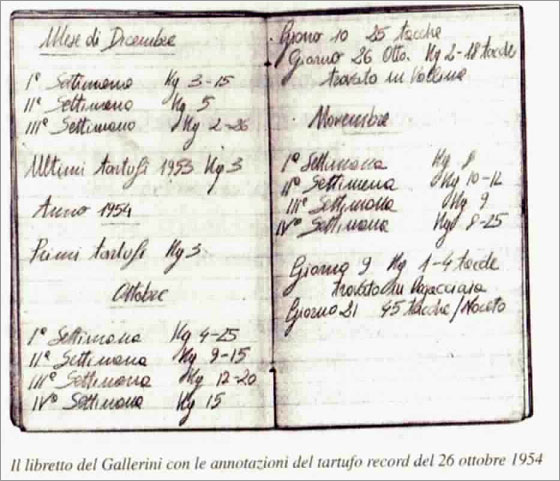 Mese di Dicembre
Iª Settimana Kg 3-15
IIª Settimana Kg 5
IIIª Settimana Kg 2-26
Ultimi tartufi 1953 Kg 3
Anno 1954
Primi tartufi Kg 3
Ottobre
Iª Settimana Kg 4-25
IIª Settimana Kg 9-15
IIIª Settimana Kg 12-20
IVª Settimana Kg 15
Giorno 10 25 tacche
Giorno 26 Otto. Kg 2-18 tacche
trovato in
Novembre
Iª Settimana Kg 8
IIª Settimana Kg 10-12
IIIª Settimana Kg 9
IVª Settimana Kg 8-25
Giorno 9 Kg 1-4 tacche
trovato in
Giorno 21 45 tacche/
Il libretto del Gallerini con le annotazioni del tartufo record del 26 ottobre 1954